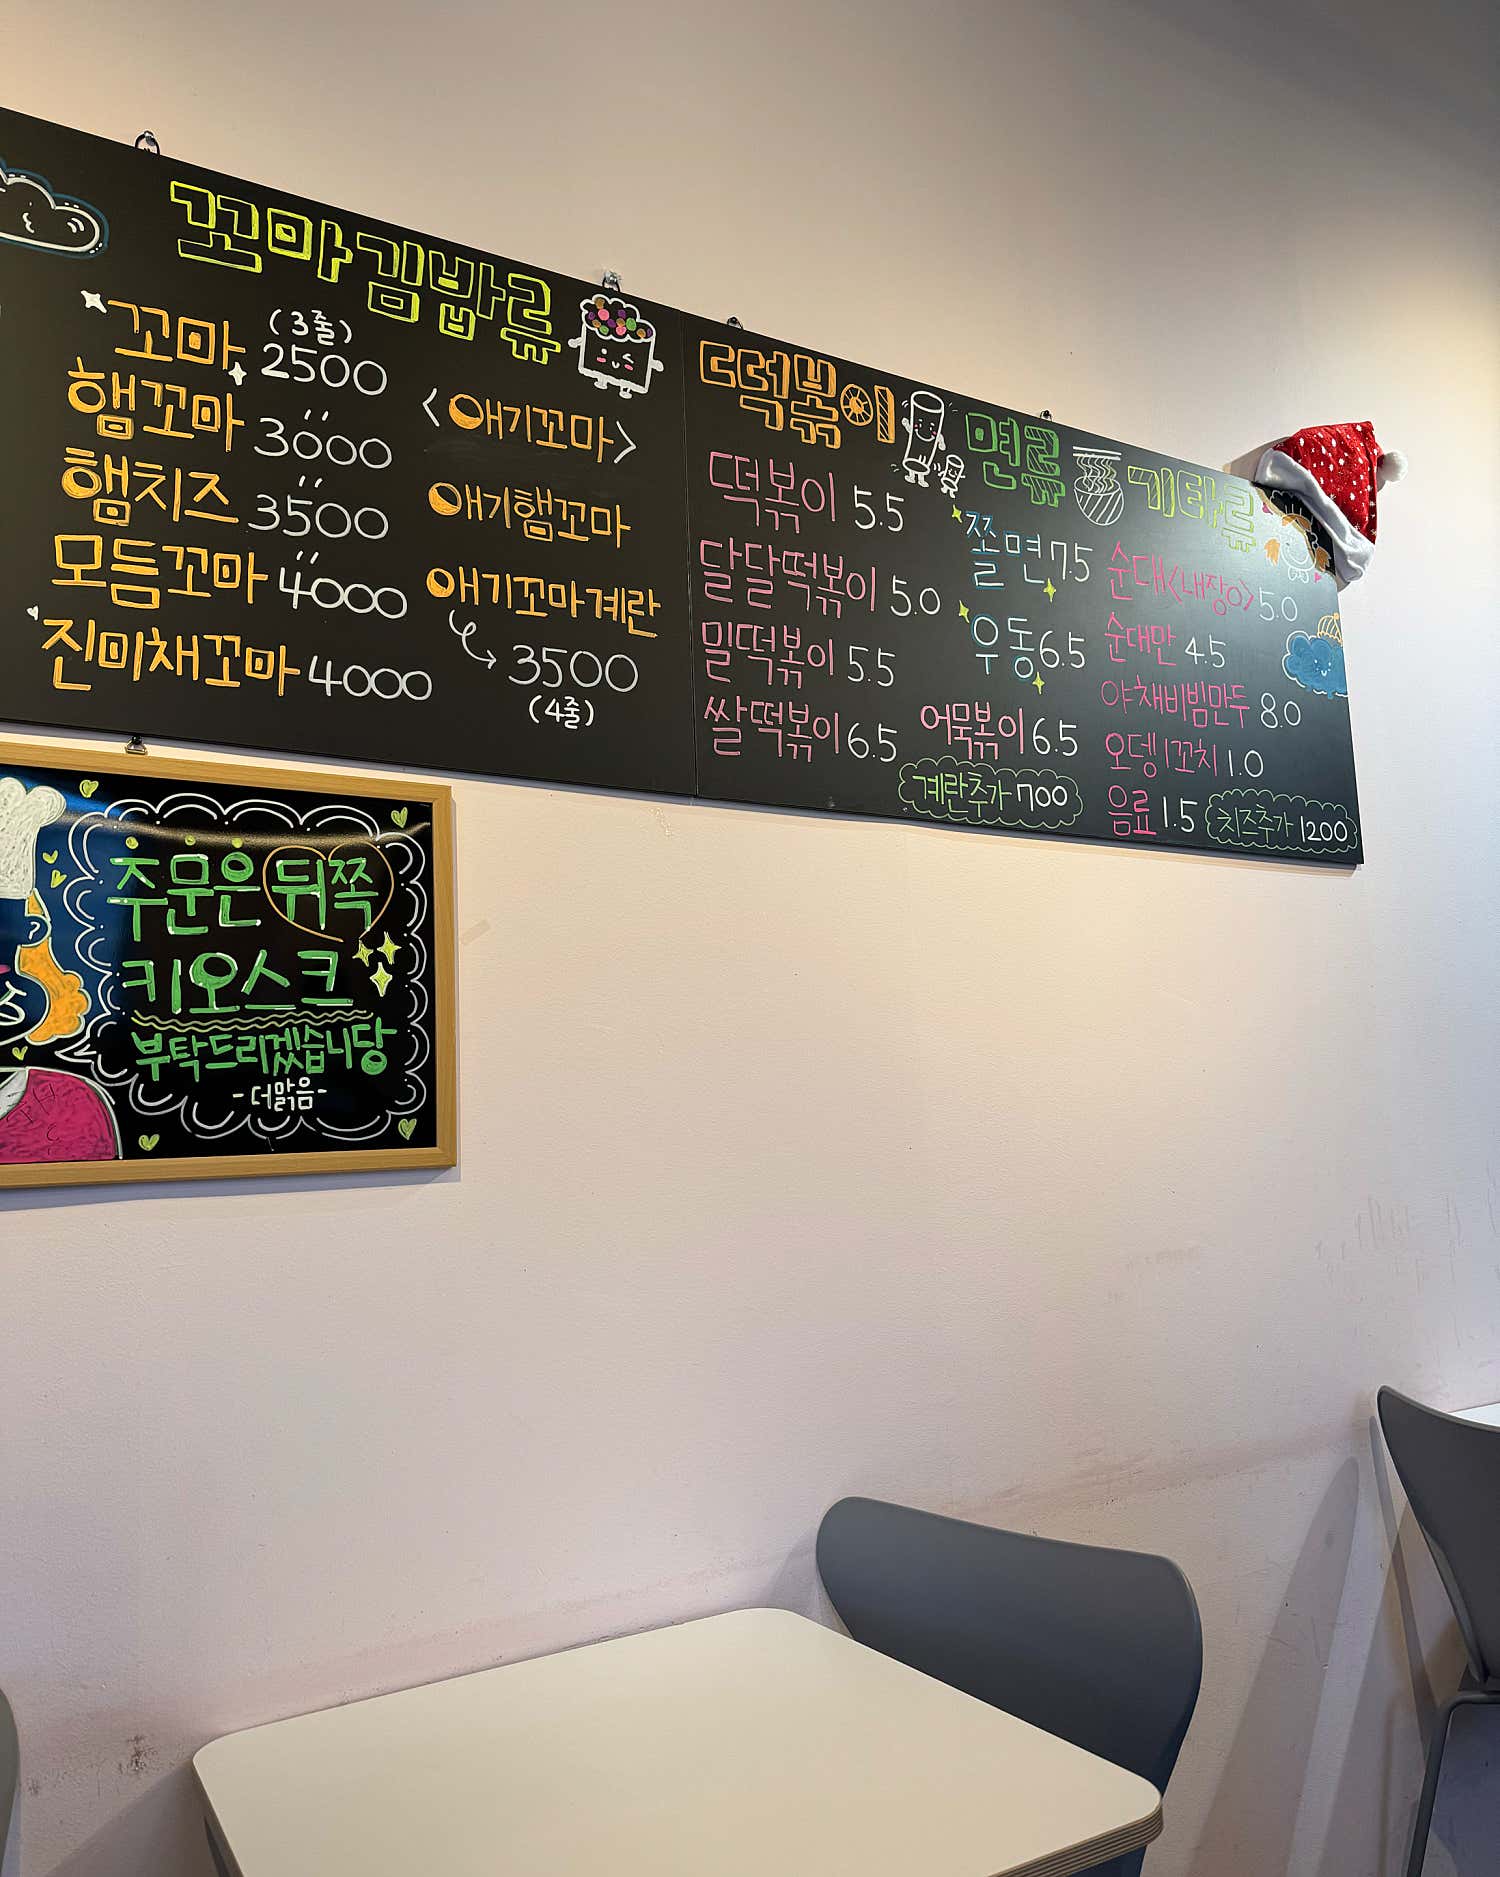 꼬마김밥류
꼬마 (3줄) 2500
햄꼬마 3000
햄치즈 3500
모듬꼬마 4000
진미채꼬마 4000
<애기꼬마>
애기햄꼬마
애기꼬마계란
3500
(4줄)
떡볶이
떡볶이 5.5
달달떡볶이 5.0
밀떡볶이 5.5
쌀떡볶이 6.5
어묵볶이 6.5
계란추가 700
면류
쫄면 7.5
우동 6.5
기타류
순대<내장o> 5.0
순대만 4.5
야채비빔만두 8.0
오뎅1꼬치 1.0
음료 1.5
치즈추가 1200
주문은 뒤쪽
키오스크
부탁드리겠습니당
-더맑음-